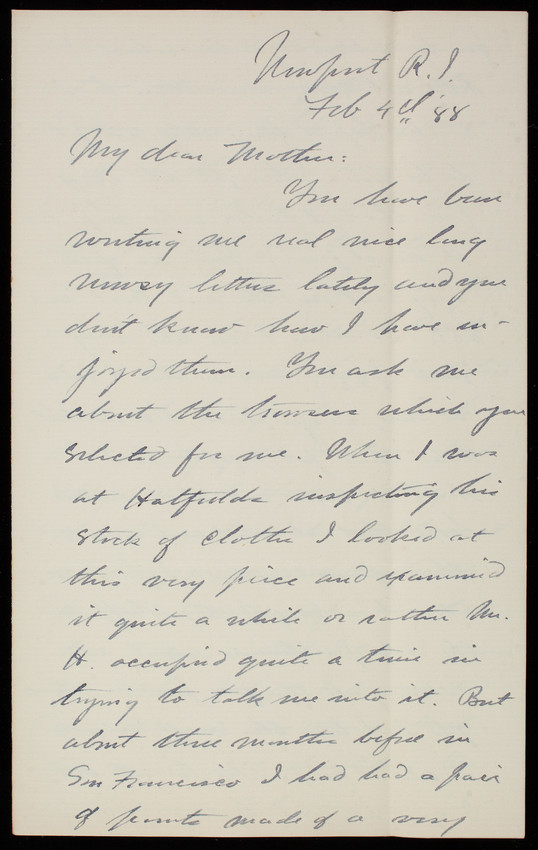 Newport R.I.
Feb 4th '88
My dear Mother:
You have been
writing me real nice long
newsy letters lately and you
don't know how I have en-
joyed them. You ask me
about the trowsers which you
selected for me. When I was
at Hatfields inspecting his
stock of cloths I looked at
this very piece and examined
it quite a while or rather Mr.
H. occupied quite a time in
trying to talk me into it. But
about three months before in
San Francisco I had had a pair
of pants made of a very